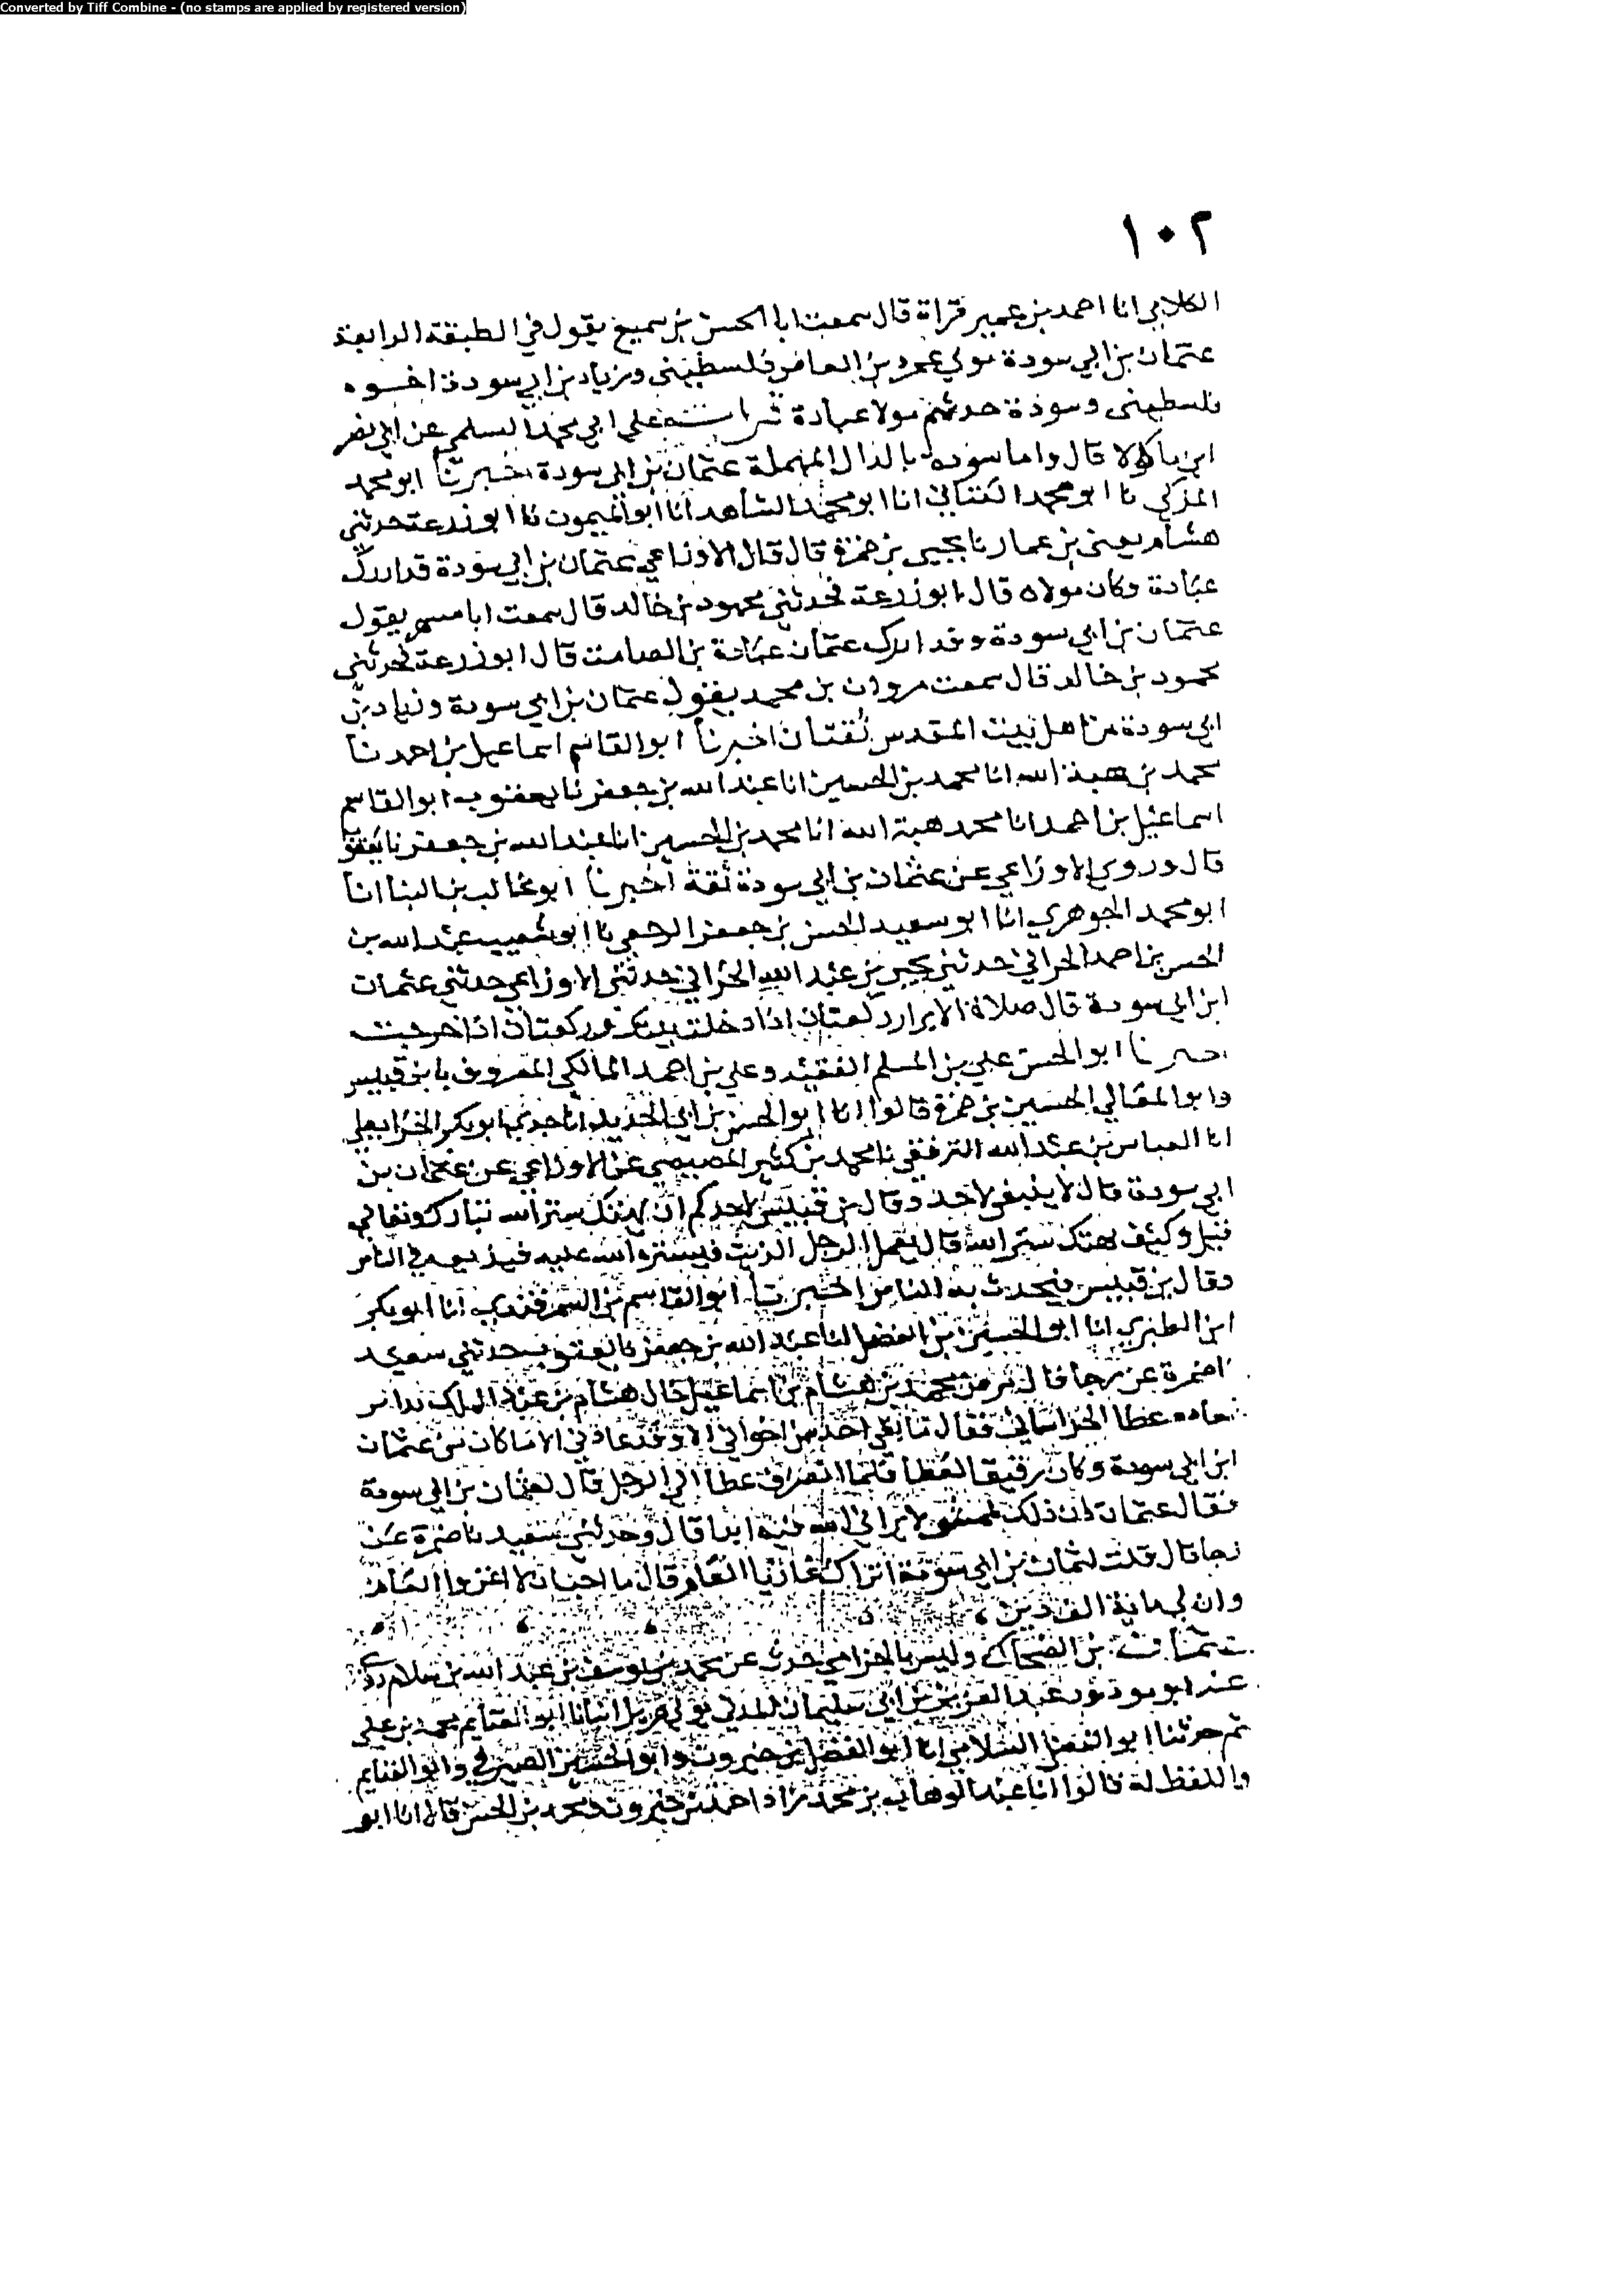 Converted by Tiff Combine - (no stamps are applied by registered version)
١٠٢
الكلابي انا احمد بن عمير قراة قال سمعت ابا الحسن بن سميع يقول في الطبقة الرابعة
عثمان بن ابي سودة مولي عمرو بن العاص فلسطيني وزياد بن ابي سودة اخوه
فلسطيني وسودة حدثهم مولا عبادة قرات علي ابي محمد السلمي عن ابي نصر
ابن ماكولا قال واما سوده بالدال المهملة عثمان بن ابي سودة اخبرنا ابو محمد
المزكي نا ابو محمد الكتاني انا ابو محمد الشاهد انا ابو الميمون نا ابو زرعة حدثني
هشام يعني بن عمار نا يحيي بن حمزة قال قال الاوزاعي عثمان بن ابي سودة قد ادرك
عبادة وكان مولاه قال ابو زرعة فحدثني محمود بن خالد قال سمعت ابا مسهر يقول
عثمان بن ابي سودة وقد ادرك عثمان عبادة بن الصامت قال ابو زرعة فحدثني
محمود بن خالد قال سمعت مروان بن محمد يقول عثمان بن ابي سودة وزياد بن
ابي سودة من اهل بيت المقدس ثقتان اخبرنا ابو القاسم اسماعيل بن احمد نا
محمد بن هبة الله انا محمد بن الحسين انا عبد الله بن جعفر نا يعقوب ابو القاسم
اسماعيل بن احمد انا محمد هبة الله انا محمد بن الحسين انا عبد الله بن جعفر نا يعقوب
قال وروي الاوزاعي عن عثمان بن ابي سودة ثقة اخبرنا ابو غالب بن البنا انا
ابو محمد الجوهري انا ابو سعيد الحسن بن جعفر نا ابو شعيب عبد الله بن
الحسن بن احمد الحراني حدثني يحيي بن عبد الله الحراني حدثني الاوزاعي حدثني عثمان
ابن ابي سودة قال صلاة الابرار ركعتان اذا دخلت بيتك وركعتان اذا خرجت
اخبرنا ابو الحسن علي بن المسلم الفقيه وعلي بن احمد المالكي المعروف بابن قبيس
وابو المعالي الحسين بن حمزة قالوا انا ابو الحسن بن ابي الحديد انا جدي ابو بكر الخرايطي
انا العباس بن عبد الله الترفقي نا محمد بن كثير المصيصي عن الاوزاعي عن عثمان بن
ابي سودة قال لا ينبغي لاحد وقال بن قبيس لاحدكم ان يهتك ستر الله تبارك وتعالي
قيل وكيف يهتك ستر الله قال يعمل الرجل الذنب فيستره الله عليه فيذيعه في الناس
وقال بن قبيس فيحدث به الناس اخبرنا ابو القاسم بن السمرقندي انا ابو بكر
ابن الطبري انا ابو الحسين بن الفضل انا عبد الله بن جعفر نا يعقوب حدثني سعيد
ضمرة عن رجا قال مرض محمد بن هشام بن اسماعيل خال هشام بن عبد الملك
عطا الخراساني فقال ما بقي احد من اخواني الا وقد عادني الا ما كان من عثمان
ابن ابي سودة وكان رفيقا لعطا فلما انصرف عطا الي الرجل قال لعثمان بن ابي سودة
فقال عثمان ان ذلك لا يراني الله فيه ابدا قال وحدثني سعيد نا ضمرة عن
رجا قال قلت لثمان بن ابي سودة اتراك غازيا العام قال ما احب ان لا اغزوا العام
وان لي ماية الف دين
عثمان بن الضحاك وليس بالحزامي حدث عن محمد بن يوسف بن عبد الله بن سلام روي
عنه ابو مودود عبد العزيز بن ابي سليمان المدني مولي هزيل انبانا ابو الغنايم محمد بن علي
ثم حدثنا ابو الفضل السلامي انا ابو الفضل بن خيرون وابو الحسين الصيرفي وابو الغنايم
واللفظ له قالوا انا عبد الوهاب بن محمد زاد احمد بن خيرون ومحمد بن الحسن قالا انا ابو